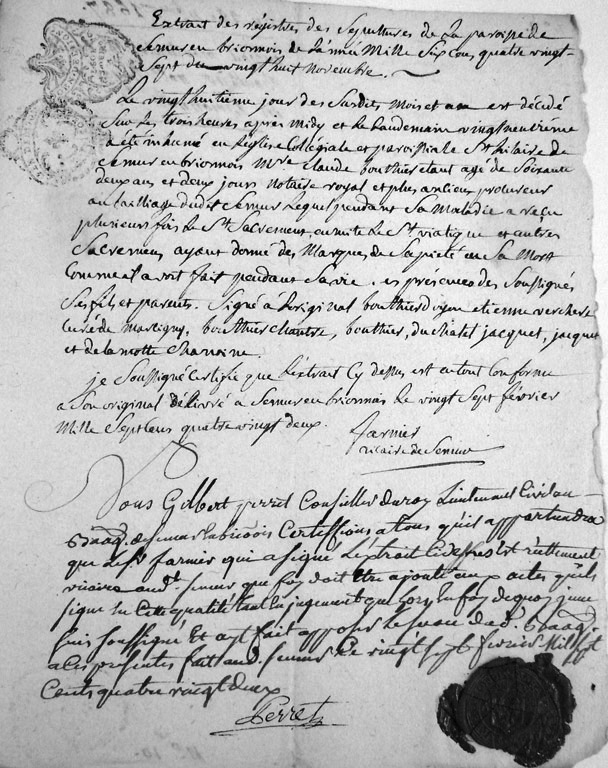 Extrait des registres des Sepultures de La paroisse de
Semur en brionnois de L'année Mille Six cens quatre vingt-
Sept du vingt huit Novembre.
Le vingt huitième jour des Susdits Mois et an est décédé
Sur les trois heures après midy et le Lendemain vingt neuvième
a été inhumé en L'eglise Collégiale et paroissiale St hilaire de
Semur en brionnois Mre claude bouthier étant agé de Soixante
deux ans et deux jours Notaire royal et plus ancien procureur
au bailliage dudit Semur Lequel pendant Sa Maladie a reçu
plusieurs fois le St Sacrement, ensuite le St viatique et autres
Sacremens ayant donné des Marques de Sa pieté en Sa Mort
Comme il avoit fait pendant Sa vie. es présences des Soussignés
Ses fils et parents. Signé à L'original bouthier doyen etienne verchere
Curé de Martigny, bouthier chantre, bouthier, du chatel jacquet, jacquet
et de la motte Chanoine.
je Soussigné Certifie que L'extrait Cy dessus est en tout Conforme
a Son original Délivré a Semur en brionnois Le vingt Sept février
Mille Sept Cens quatre vingt deux.
farnier
vicaire de Semur
Nous Gilbert perret Conseiller du roy Lieutenant Civil au
Baag. de semur en brionnois Certiffions a tous qu'il appartiendra
que le Sr. farnier qui a signé L'extrait Cidessus Est réellement
vicaire aud. semur que foy doit être ajoutée aux actes qu'il
signe en Cette qualité tant en jugement que hors, en foy de quoy nous
Nous soussigné Et ayt fait apposer Le sceau dud. Baag.
a Ces presentes fait aud. semur Le vingt sept fevrier Mil sept
Cents quatre vingt deux
Perret